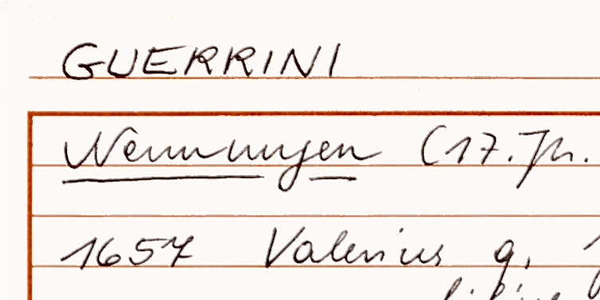 GUERRINI
Nennungen (17. Jh.
1657 Valerius g.